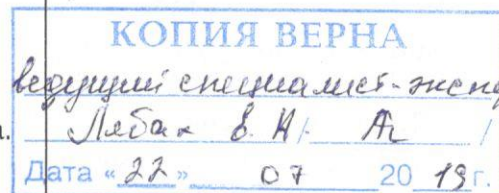 КОПИЯ ВЕРНА
ведущий специалист-экспе
Е. Н. /
Дата «22» 07 2019 г.